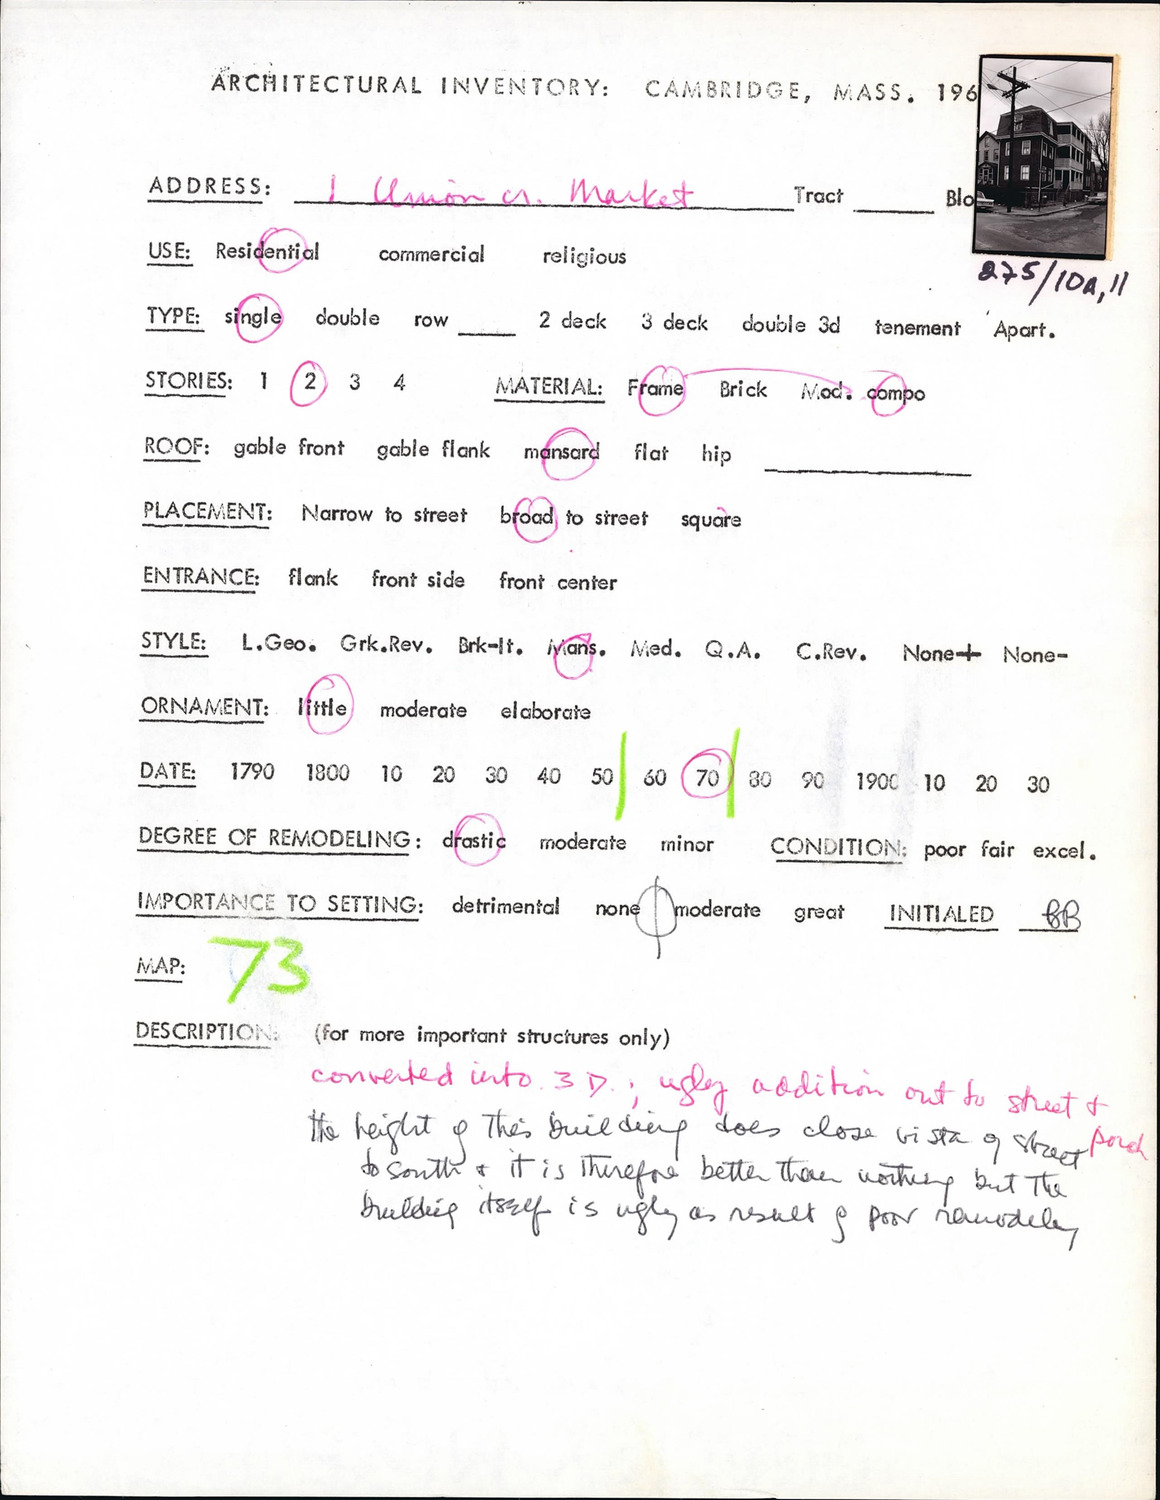 ARCHITECTURAL INVENTORY: CAMBRIDGE, MASS. 196
ADDRESS: 1 Union cr. Market Tract ____ Blo
275/10a,11
USE: Residential commercial religious
TYPE: single double row ____ 2 deck 3 deck double 3d tenement Apart.
STORIES: 1 2 3 4 MATERIAL: Frame Brick Mod. compo
ROOF: gable front gable flank mansard flat hip ____
PLACEMENT: Narrow to street broad to street square
ENTRANCE: flank front side front center
STYLE: L.Geo. Grk.Rev. Brk-It. Mans. Med. Q.A. C.Rev. None+ None-
ORNAMENT: little moderate elaborate
DATE: 1790 1800 10 20 30 40 50 60 70 80 90 1900 10 20 30
DEGREE OF REMODELING: drastic moderate minor CONDITION: poor fair excel.
IMPORTANCE TO SETTING: detrimental none moderate great INITIALED BR
MAP: 73
DESCRIPTION: (for more important structures only)
converted into 3 D.; ugly addition out to street + porch
the height of this building does close vista of street
to south + it is therefore better than nothing but the
building itself is ugly as result of poor remodeling